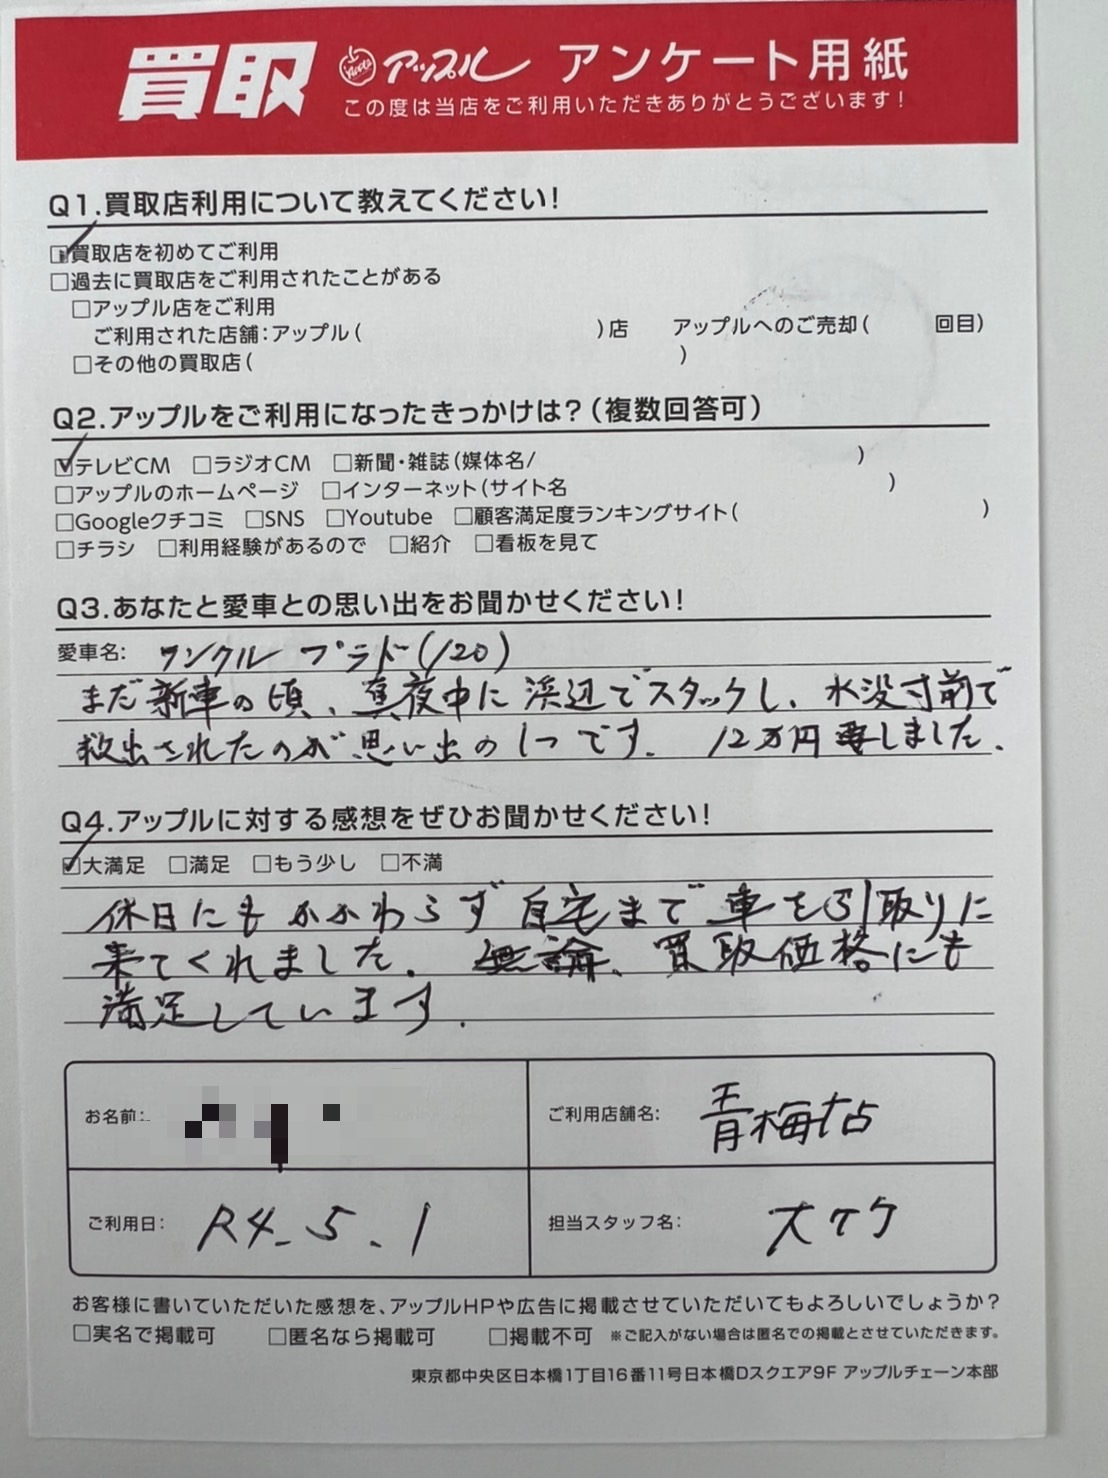 買取 アップル アンケート用紙
この度は当店をご利用いただきありがとうございます!
Q1.買取店利用について教えてください!
☑買取店を初めてご利用
□過去に買取店をご利用されたことがある
□アップル店をご利用
ご利用された店舗:アップル( )店 アップルへのご売却( 回目)
□その他の買取店( )
Q2.アップルをご利用になったきっかけは?(複数回答可)
☑テレビCM □ラジオCM □新聞・雑誌(媒体名/ )
□アップルのホームページ □インターネット(サイト名 )
□Googleクチコミ □SNS □Youtube □顧客満足度ランキングサイト( )
□チラシ □利用経験があるので □紹介 □看板を見て
Q3.あなたと愛車との思い出をお聞かせください!
愛車名: ランクル プラド(120)
まだ新車の頃、真夜中に浜辺でスタックし、水没寸前で
救出されたのが思い出の1つです. 12万円要しました.
Q4.アップルに対する感想をぜひお聞かせください!
☑大満足 □満足 □もう少し □不満
休日にもかかわらず自宅まで車を引取りに
来てくれました. 無論、買取価格にも
満足しています.
お名前:
ご利用店舗名: 青梅店
ご利用日: R4.5.1
担当スタッフ名: 大竹
お客様に書いていただいた感想を、アップルHPや広告に掲載させていただいてもよろしいでしょうか?
□実名で掲載可 □匿名なら掲載可 □掲載不可 ※ご記入がない場合は匿名での掲載とさせていただきます。
東京都中央区日本橋1丁目16番11号日本橋Dスクエア9F アップルチェーン本部